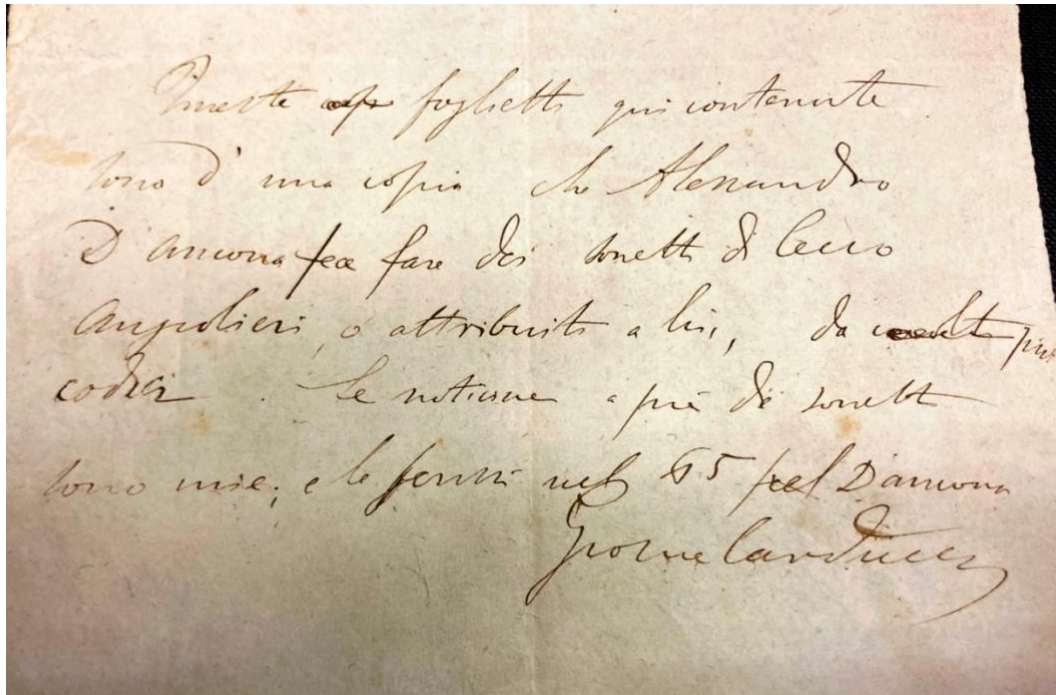 Queste foglietti qui contenute
sono d'una copia che Alessandro
D'Ancona fece fare dei sonetti di Cecco
Angiolieri, o attribuiti a lui, da più
codici. Le noticine a piè di sonetti
sono mie; e le scrissi nel 65 pel D'Ancona
Giosue Carducci